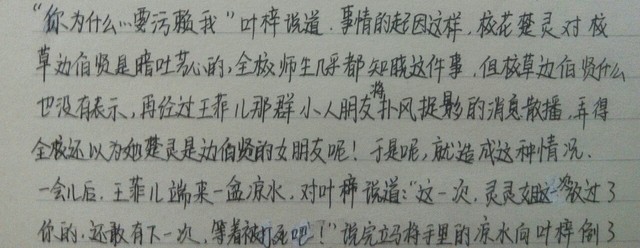 "你为什么…要污赖我"叶梓说道.事情的起因这样,校花楚灵对校
草边伯贤是暗吐芳心的,全校师生几乎都知晓这件事.但校草边伯贤什么
也没有表示,再经过王菲儿那群小人朋友将扑风捉影的消息散播,弄得
全校还以为她楚灵是边伯贤的女朋友呢!于是呢,就造成这种情况.
一会儿后,王菲儿端来一盆凉水,对叶梓说道:"这一次,灵灵姐放过了
你的.还敢有下一次,等着被打死吧!"说完立马将手里的凉水向叶梓倒了